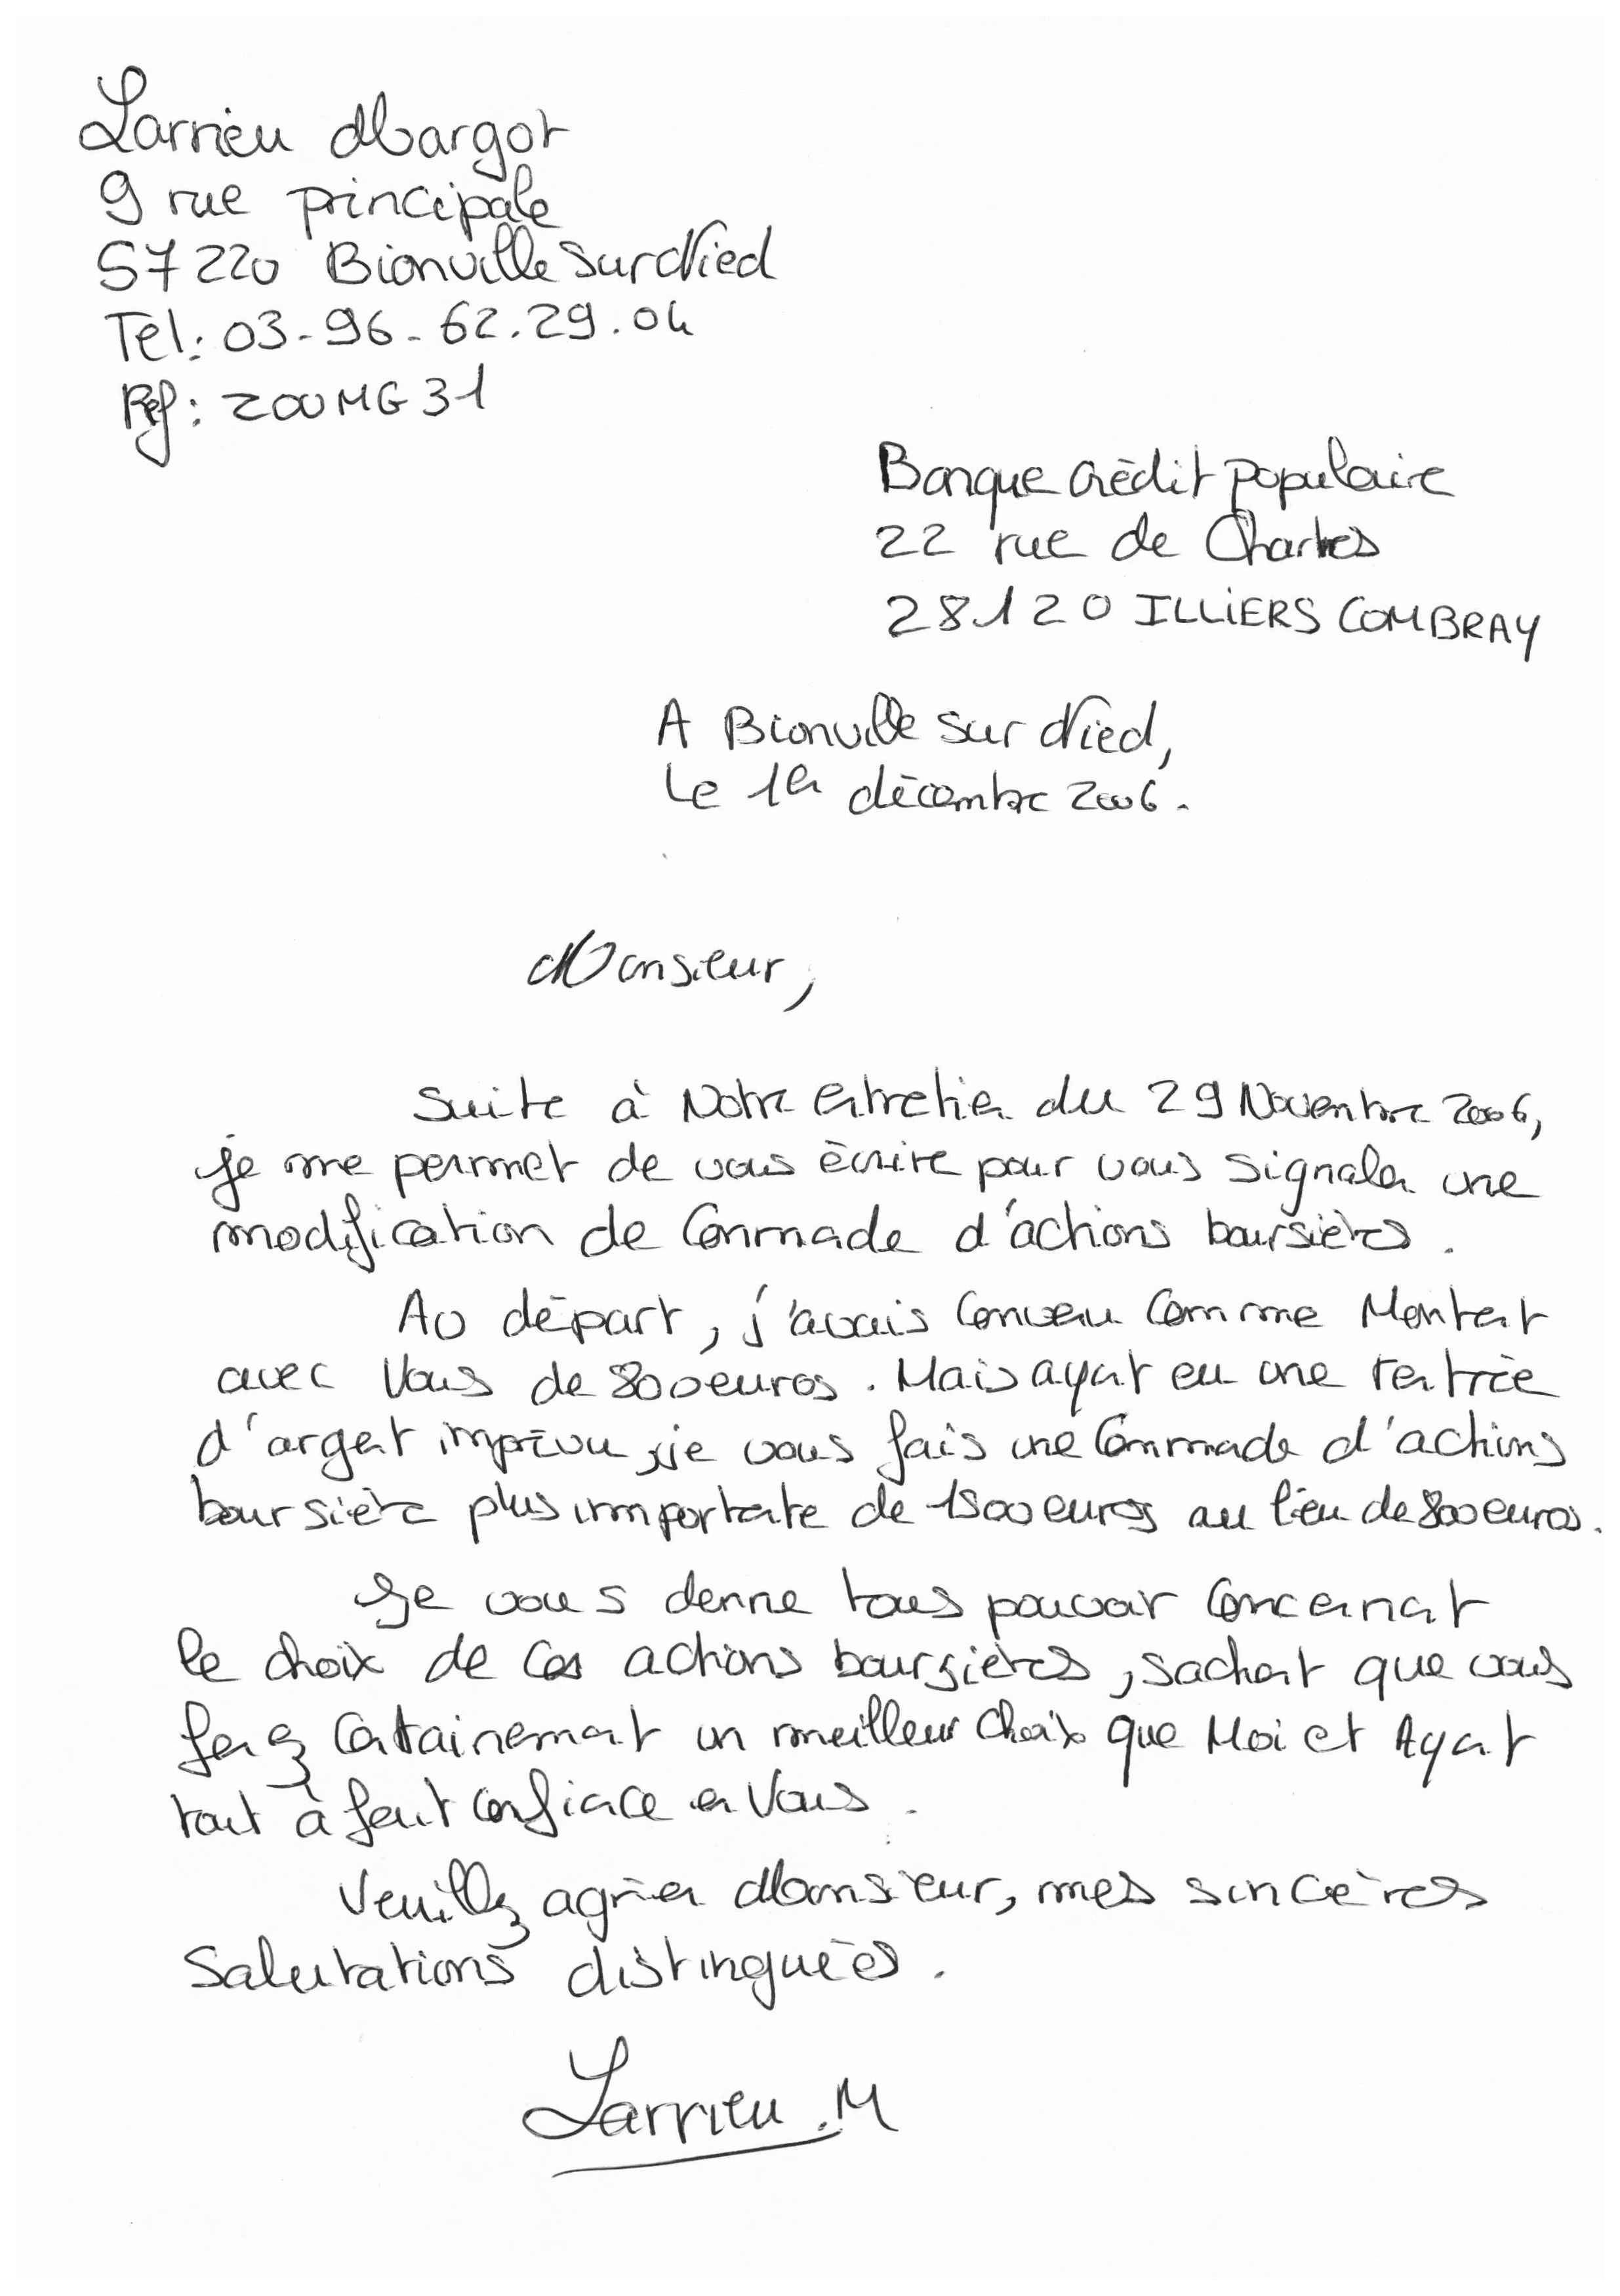 Larrieu Margot
9 rue principale
57220 Bionville sur Nied
Tel: 03-96-62.29.04
Réf: ZOOMG31
Banque crédit populaire
22 rue de Chartres
28120 ILLIERS COMBRAY
A Bionville sur Nied,
Le 1er décembre 2006.
Monsieur,
Suite à Notre entretien du 29 Novembre 2006,
je me permet de vous écrire pour vous signaler une
modification de Commande d'actions boursières.
Au départ, j'avais Convenu Comme Montant
avec Vous de 800euros. Mais ayant eu une rentrée
d'argent imprévu, je vous fais une Commande d'actions
boursière plus importante de 1500 euros au lieu de 800 euros.
Je vous donne tous pouvoir Concernant
le choix de Ces actions boursières, sachant que vous
ferez Certainement un meilleur Choix que Moi et Ayant
tout à fait confiance en Vous.
Veuillez agréer Monsieur, mes sincères
Salutations distinguées.
Larrieu.M